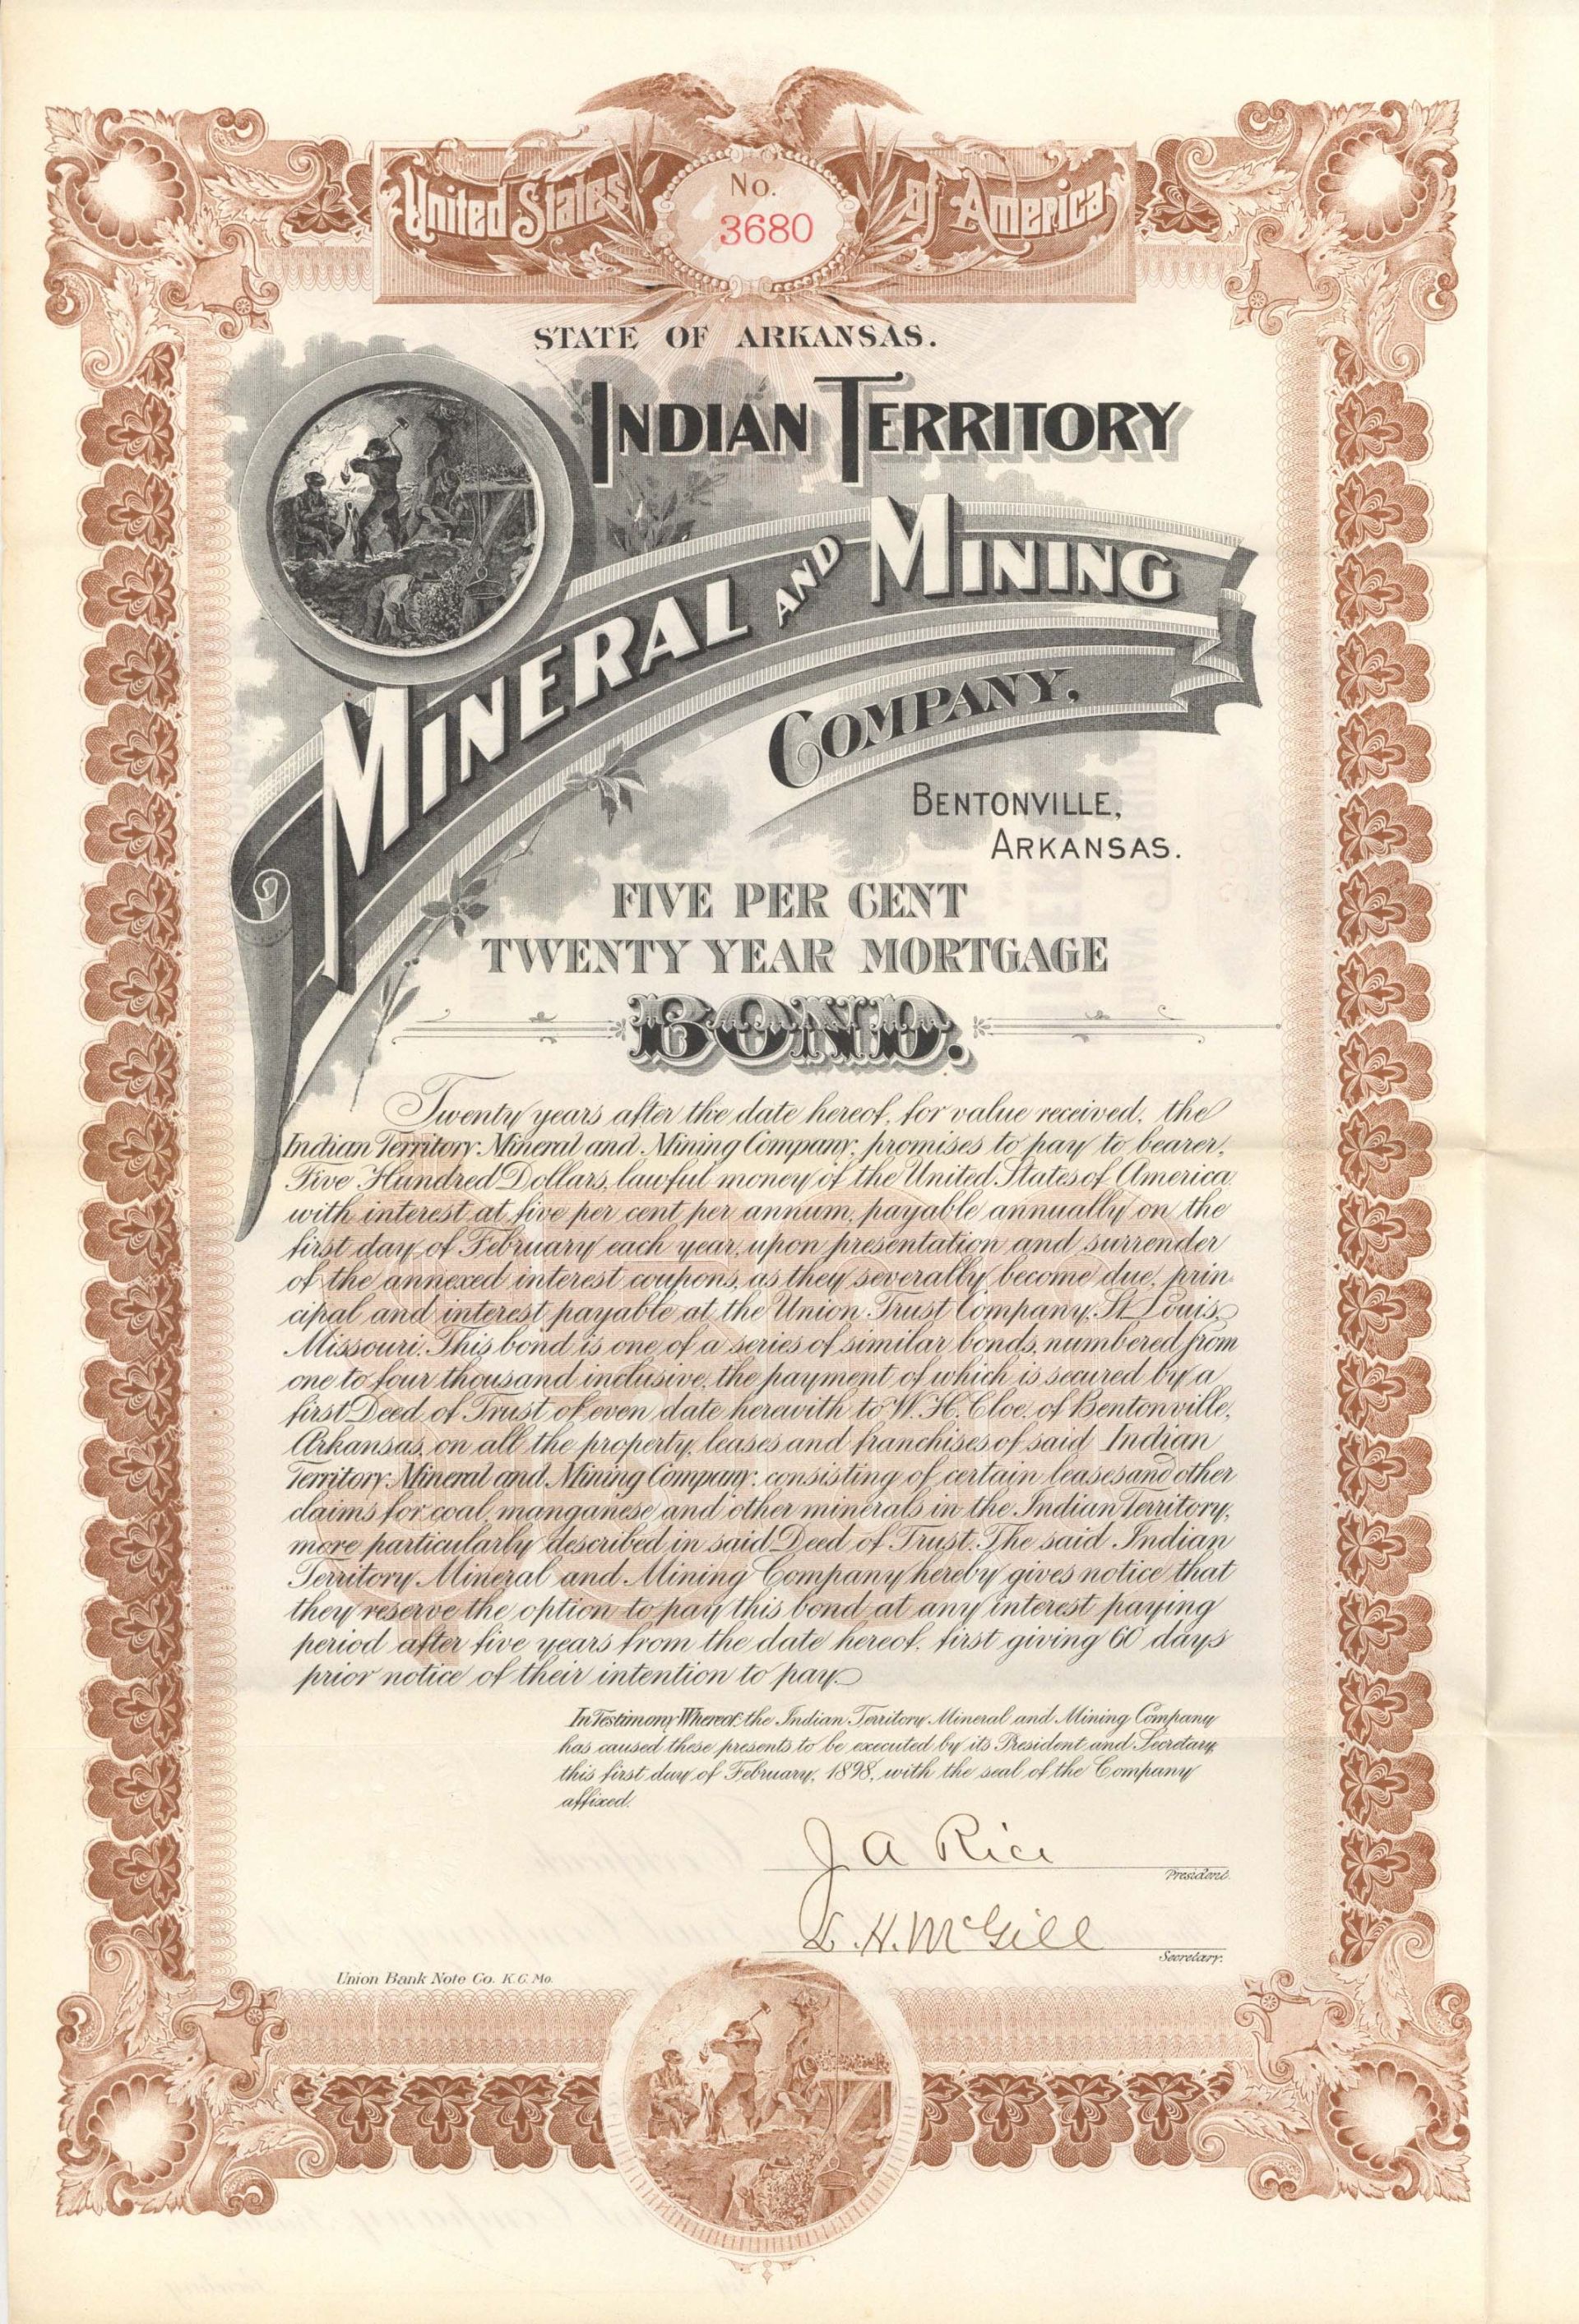 United States of America
No.
3680
STATE OF ARKANSAS.
INDIAN TERRITORY
MINERAL AND MINING
COMPANY,
BENTONVILLE,
ARKANSAS.
FIVE PER CENT
TWENTY YEAR MORTGAGE
BOND.
Twenty years after the date hereof, for value received, the
Indian Territory Mineral and Mining Company, promises to pay to bearer,
Five Hundred Dollars, lawful money of the United States of America
with interest at five per cent per annum, payable annually on the
first day of February each year, upon presentation and surrender
of the annexed interest coupons, as they severally become due, prin-
cipal and interest payable at the Union Trust Company, St. Louis,
Missouri. This bond is one of a series of similar bonds, numbered from
one to four thousand inclusive, the payment of which is secured by a
first Deed of Trust of even date herewith to W. H. Cloe, of Bentonville,
Arkansas, on all the property, leases and franchises of said Indian
Territory Mineral and Mining Company: consisting of certain leases and other
claims for coal, manganese and other minerals in the Indian Territory,
more particularly described in said Deed of Trust. The said Indian
Territory Mineral and Mining Company hereby gives notice that
they reserve the option to pay this bond at any interest paying
period after five years from the date hereof, first giving 60 days
prior notice of their intention to pay.
In Testimony Whereof, the Indian Territory Mineral and Mining Company
has caused these presents to be executed by its President and Secretary,
this first day of February, 1898, with the seal of the Company
affixed.
J A Rice
President.
L. H. McGill
Secretary.
Union Bank Note Co. K.C. Mo.